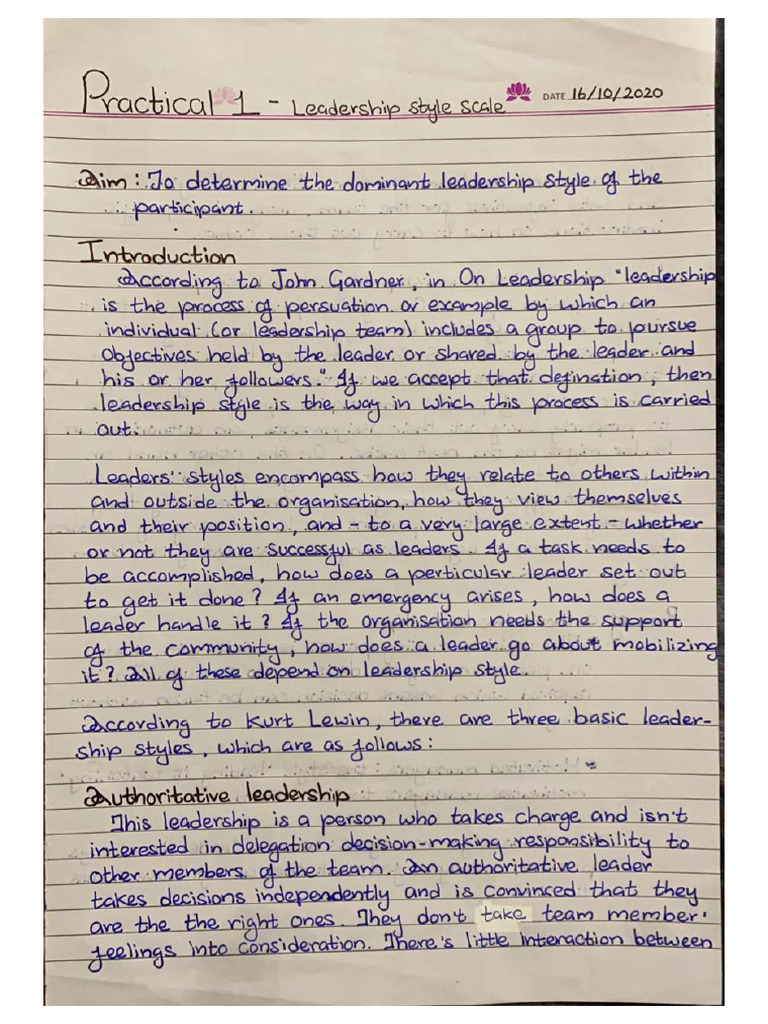 Practical 1 - Leadership style scale DATE 16/10/2020
Aim: To determine the dominant leadership style of the
participant.
Introduction
According to John Gardner, in On Leadership "leadership
is the process of persuation or example by which an
individual (or leadership team) includes a group to pursue
objectives held by the leader or shared by the leader and
his or her followers." If we accept that defination, then
leadership style is the way in which this process is carried
out.
Leaders' styles encompass how they relate to others within
and outside the organisation, how they view themselves
and their position, and - to a very large extent - whether
or not they are successful as leaders. If a task needs to
be accomplished, how does a perticular leader set out
to get it done? If an emergency arises, how does a
leader handle it? If the organisation needs the support
of the community, how does a leader go about mobilizing
it? All of these depend on leadership style.
According to Kurt Lewin, there are three basic leader-
ship styles, which are as follows:
Authoritative leadership
This leadership is a person who takes charge and isn't
interested in delegation decision-making responsibility to
other members of the team. An authoritative leader
takes decisions independently and is convinced that they
are the the right ones. They don't take team member.
feelings into consideration. There's little interaction between